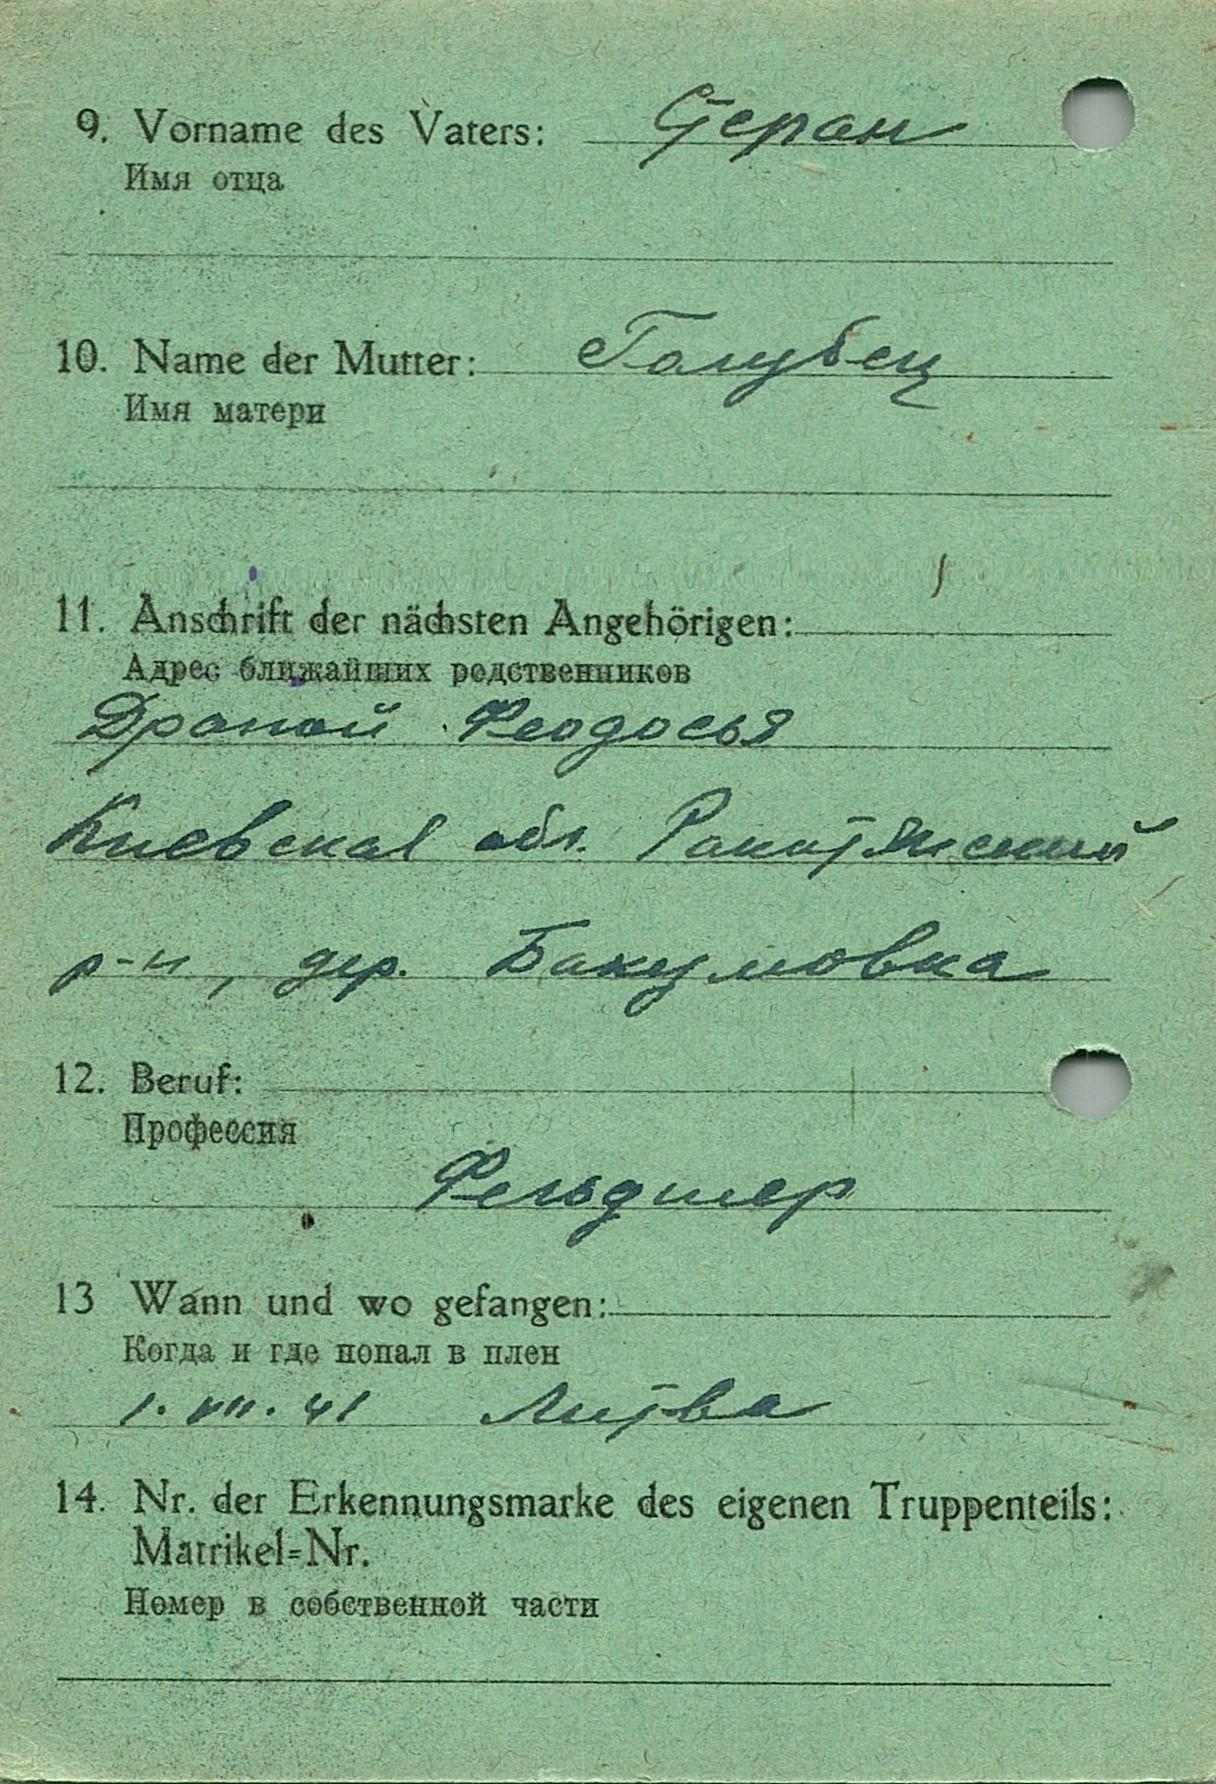 9. Vorname des Vaters: Степан
Имя отца
10. Name der Mutter: Голубец
Имя матери
11. Anschrift der nächsten Angehörigen:
Адрес ближайших родственников
Драпой Феодосья
Киевская обл. Ракитянский
р-н, дер. Бакумовка
12. Beruf:
Профессия
Фельдшер
13 Wann und wo gefangen:
Когда и где попал в плен
1. VII. 41 Литва
14. Nr. der Erkennungsmarke des eigenen Truppenteils:
Matrikel=Nr.
Номер в собственной части